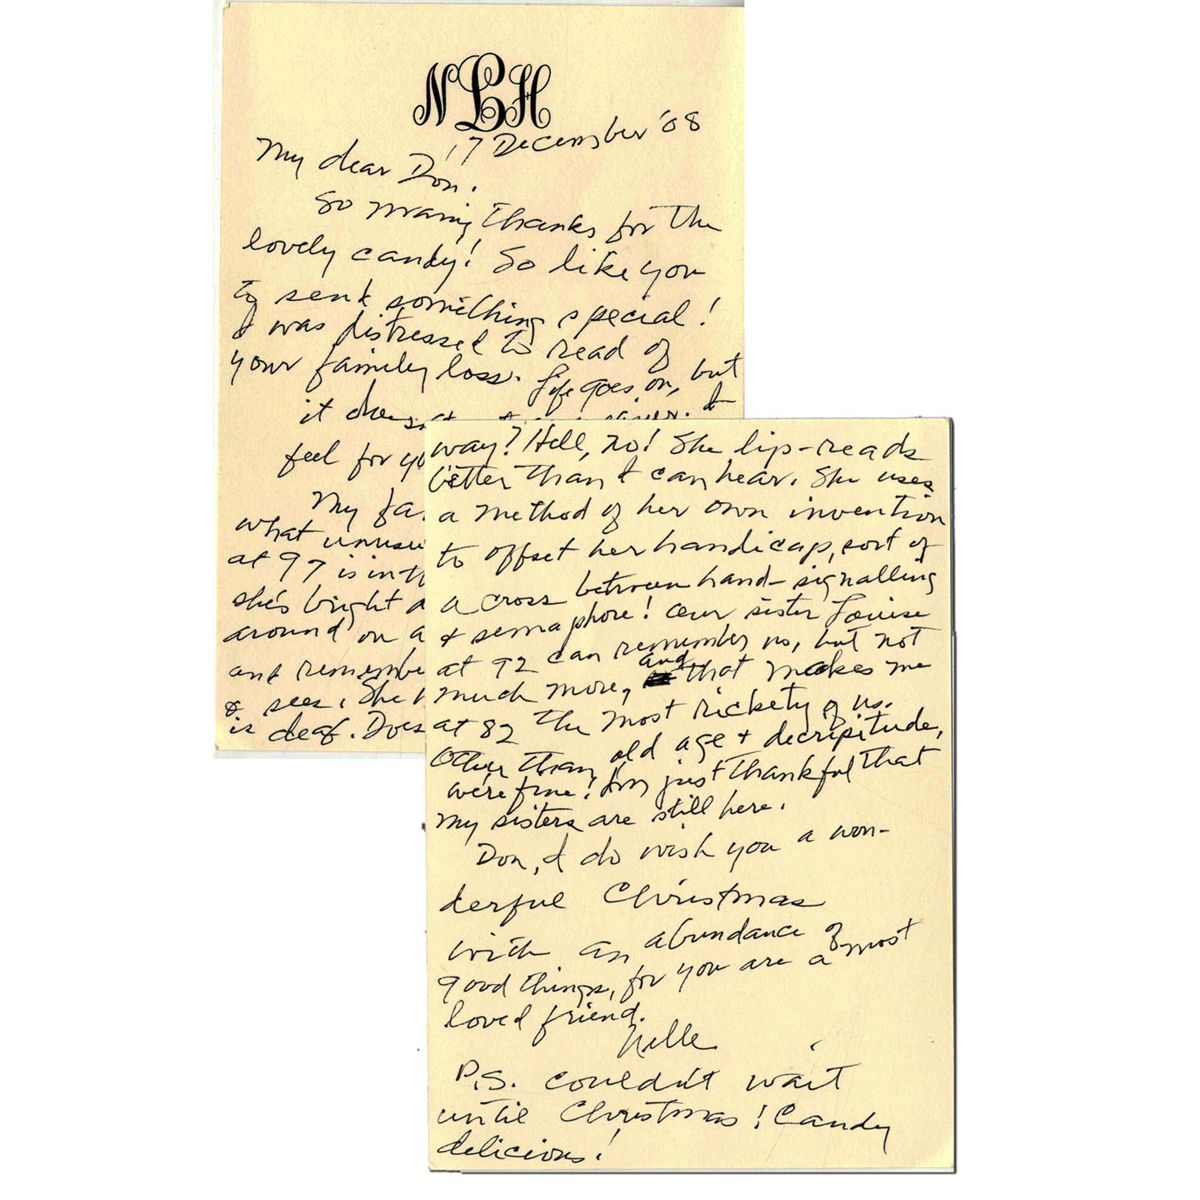 NLH
17 December '08
My dear Don:
So many thanks for the
lovely candy! So like you
to send something special!
I was distressed to read of
your family loss. Life goes on, but
it does
feel for yo
My fa
what unusu
at 97 is in th
she's bright a
around on a
and remembe
& sees. She h
is deaf. Does
way? Hell, no! She lip-reads
better than I can hear. She uses
a method of her own invention
to offset her handicap, sort of
a cross between hand-signalling
& semaphore! Our sister Louise
at 92 can remember us, but not
much more, and that makes me
at 82 the most rickety of us.
Other than old age & decripitude,
we're fine! I'm just thankful that
my sisters are still here.
Don, I do wish you a won-
derful Christmas
with an abundance of
good things, for you are a most
loved friend.
Nelle
P.S. Couldn't wait
until Christmas! Candy
delicious!